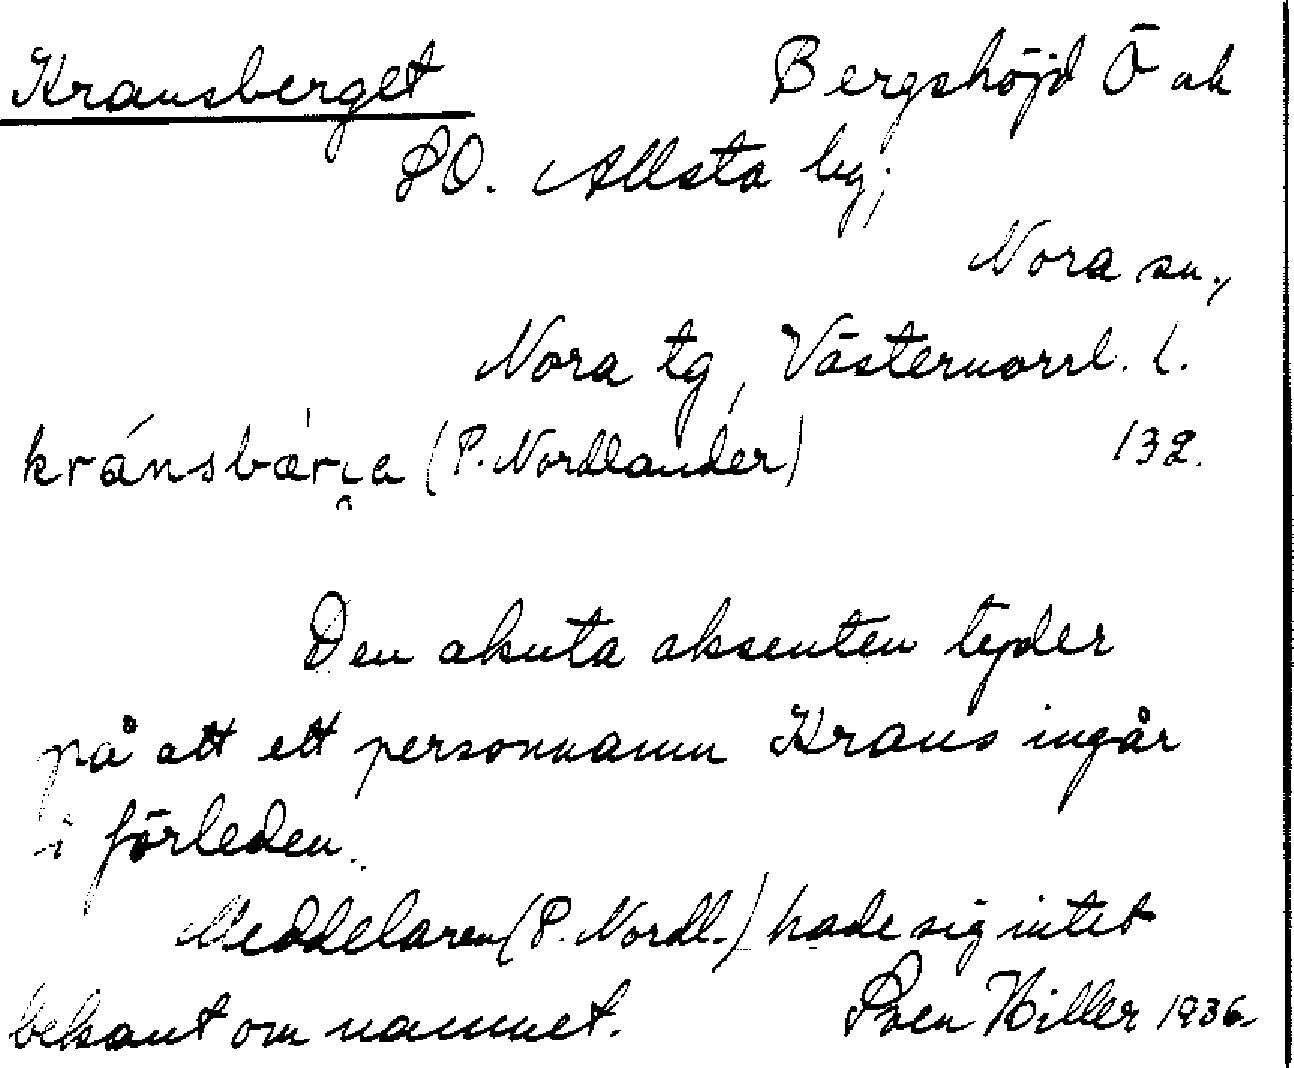 Kransberget Bergshöjd Ö och
SO. Allsta by;
Nora sn.,
Nora tg, Västernorrl. l.
kránsbær̥a (P. Nordlander) 132.
Den akuta aksenten tyder
på att ett personnamn Krans ingår
i förleden.
Meddelaren (P. Nordl.) hade sig intet
bekant om namnet. Sven Hiller 1936.